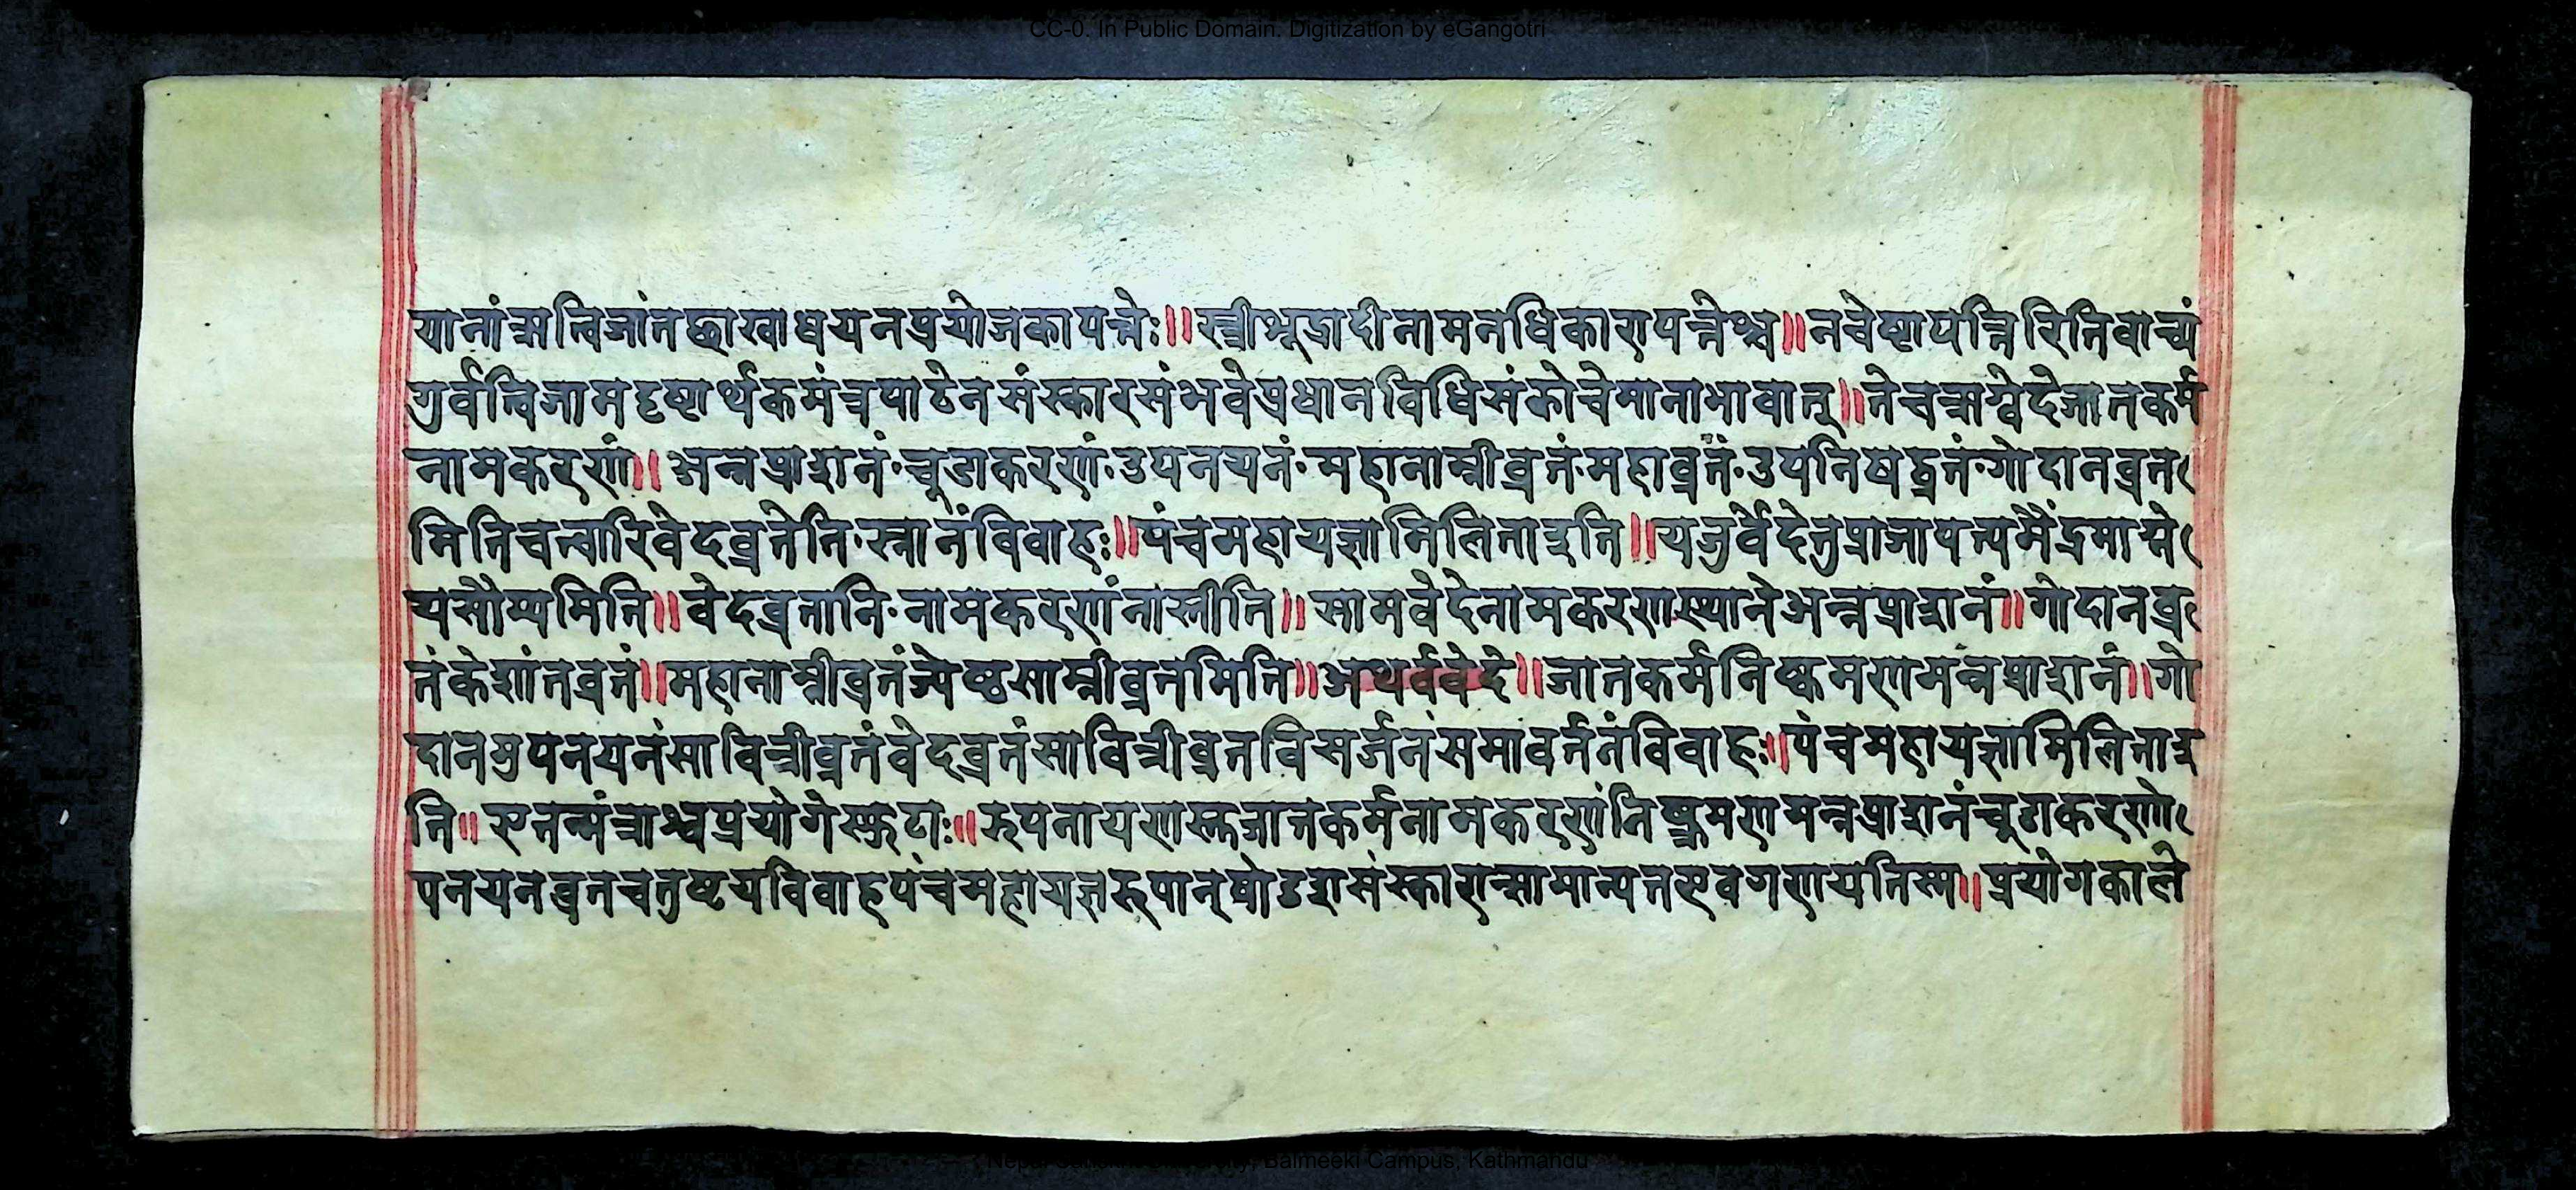 CC-0. In Public Domain. Digitization by eGangotri
यानांऋत्विजांतच्छाखाध्ययनप्रयोजकापत्तेः॥स्त्रीशूद्रादीनामनधिकारापत्तेश्च॥नचेष्टापत्तिरितिवाच्यं
गुर्वर्त्विजामदृष्टार्थकमंत्रपाठेनसंस्कारसंभवेप्रधानविधिसंकोचेमानाभावात्॥तेचऋग्वेदेजातकर्म
नामकरणं॥अन्नप्राशनं·चुडाकरणं·उपनयनं·महानाम्नीव्रतं·महाव्रतं·उपनिषद्व्रतं·गोदानव्रत
मितिचत्वारिवेदव्रतेति·स्नानंविवाहः॥पंचमहायज्ञामिलिताद्दशति॥यजुर्वेदेतुप्राजापत्यमैंद्रमाग्ने
यसौम्यमिति॥वेदव्रतानि·नामकरणंनास्तीति॥सामवेदेनामकरणस्थानेअन्नप्राशनं॥गोदानव्र
तंकेशांतव्रतं॥महानाम्नीव्रतंज्येष्ठसाम्नीव्रतमिति॥अथर्ववेदे॥जातकर्मनिष्क्रमणमन्नप्राशनं॥गो
दानमुपनयनंसावित्रीव्रतंवेदव्रतंसावित्रीव्रतविसर्जनंसमावर्तनंविवाहः॥पंचमहायज्ञामिलिताद्श
ति॥एतन्मंत्राश्चप्रयोगेस्फुटाः॥रूपनारायणस्तुजातकर्मनामकरणंनिष्क्रमणमन्नप्राशनंचुडाकरणो
पनयनव्रतचतुष्टयविवाहपंचमहायज्ञरूपान्षोडशसंस्कारान्सामान्यतएवगणयतिस्म॥प्रयोगकाले
Balmeeki Campus, Kathmandu